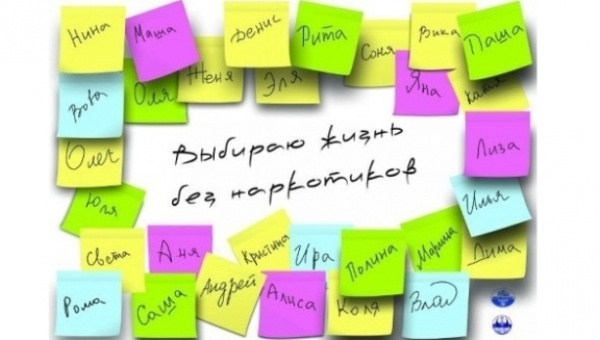 Нина
Маша
Денис
Рита
Соня
Вика
Паша
Вова
Оля
Женя
Эля
Яна
Катя
Олег
Выбираю жизнь
без наркотиков
Лиза
Юля
Илья
Света
Аня
Кристина
Ира
Полина
Марина
Дима
Рома
Саша
Андрей
Алиса
Коля
Влад